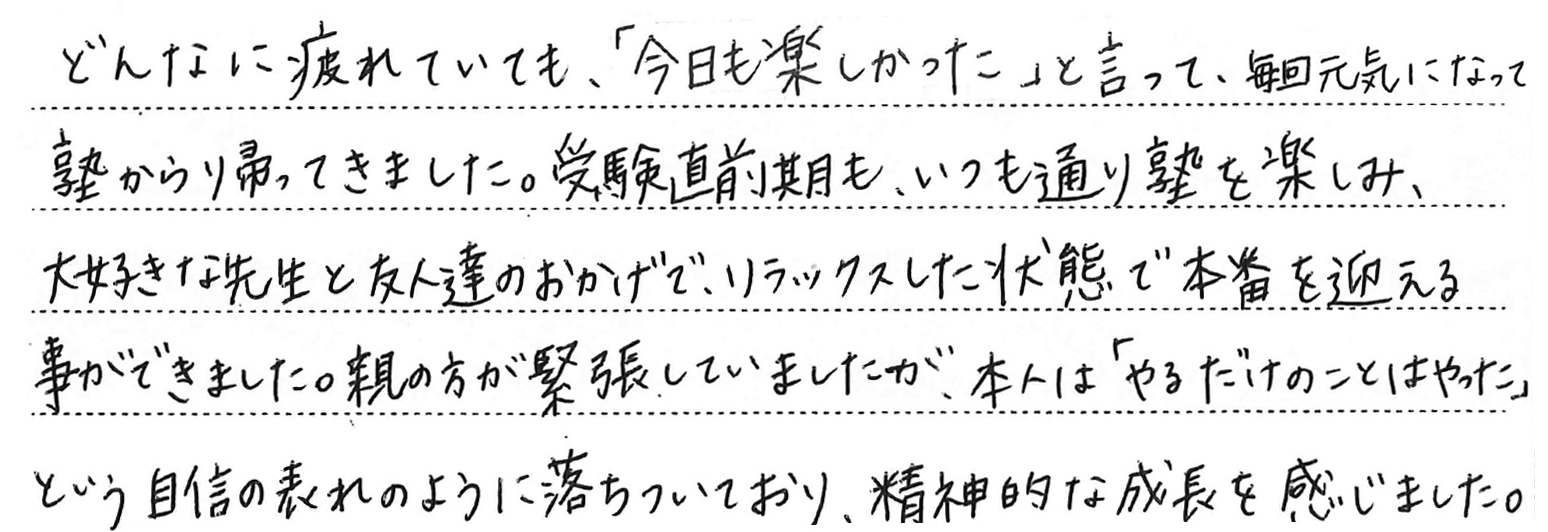 どんなに疲れていても、「今日も楽しかった」と言って、毎回元気になって
塾からり帰ってきました。受験直前期も、いつも通り塾を楽しみ、
大好きな先生と友人達のおかげで、リラックスした状態で本番を迎える
事ができました。親の方が緊張していましたが、本人は「やるだけのことはやった」
という自信の表れのように落ちついており、精神的な成長を感じました。